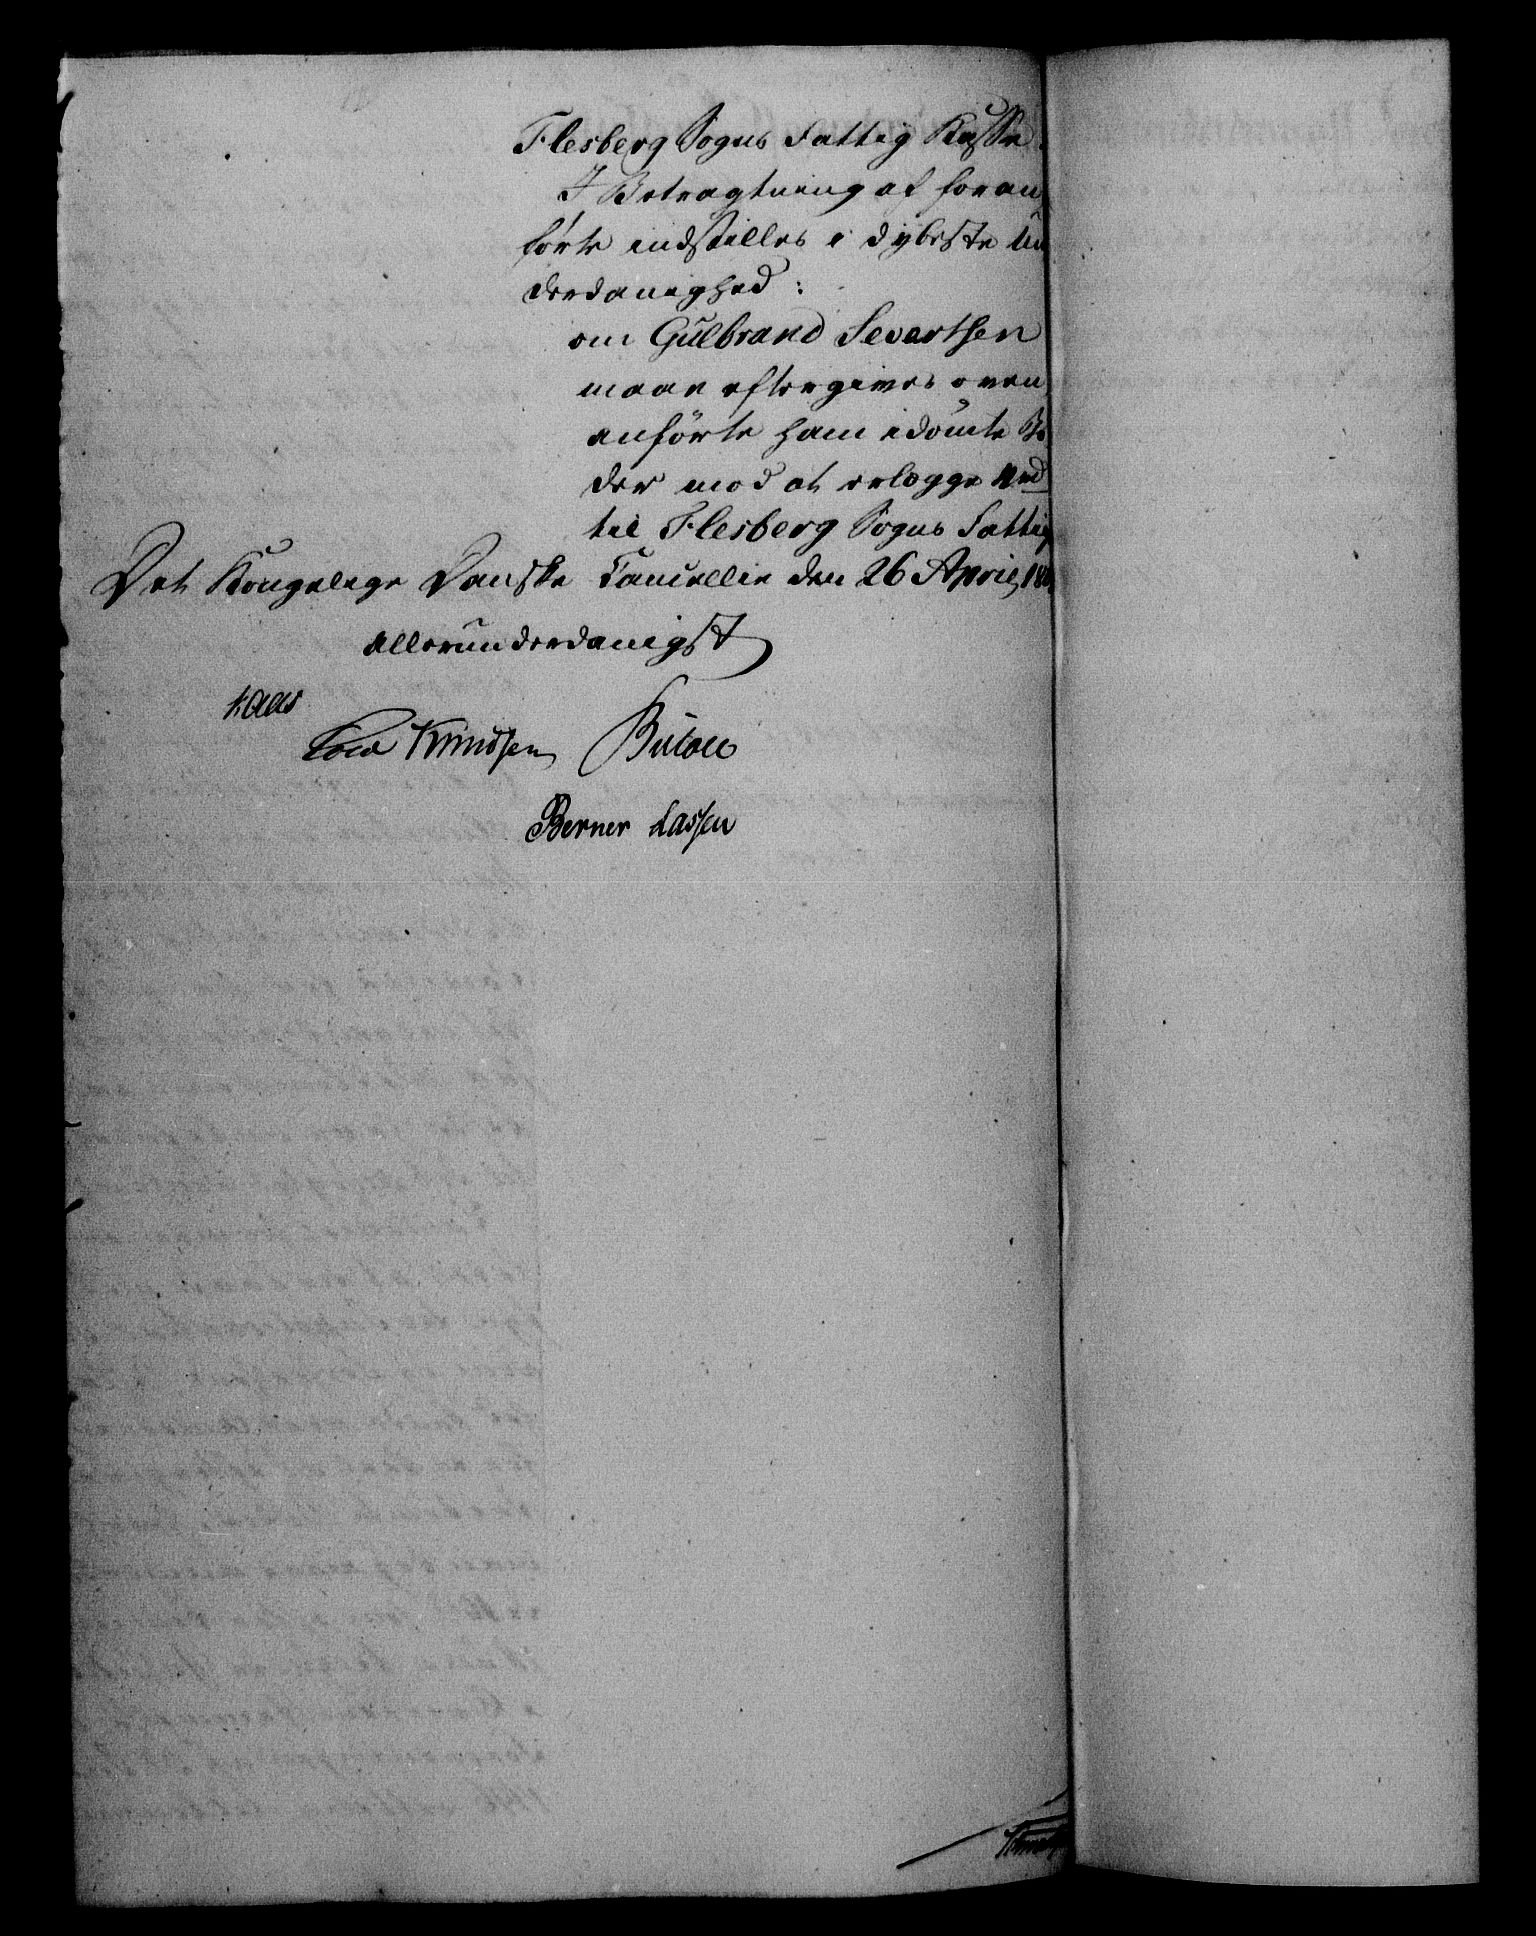 Flesberg Sogns Fattig Kasse.
I Betragtning af foran
førte indstilles i dybeste Un
derdanighed:
om Gulbrand Sevartsen
maae eftergives oven
anførte ham idömte Bö
der mod at erlægge 4rd
til Flesberg Sogns Fattig
Det Kongelige Danske Cancellie den 26 April, 180
allerunderdanigst
Kaas
Cold Knudsen Bülow
Berner Lassen